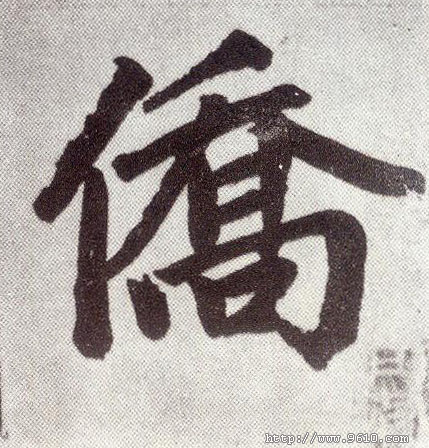 僑
http://www.9610.com